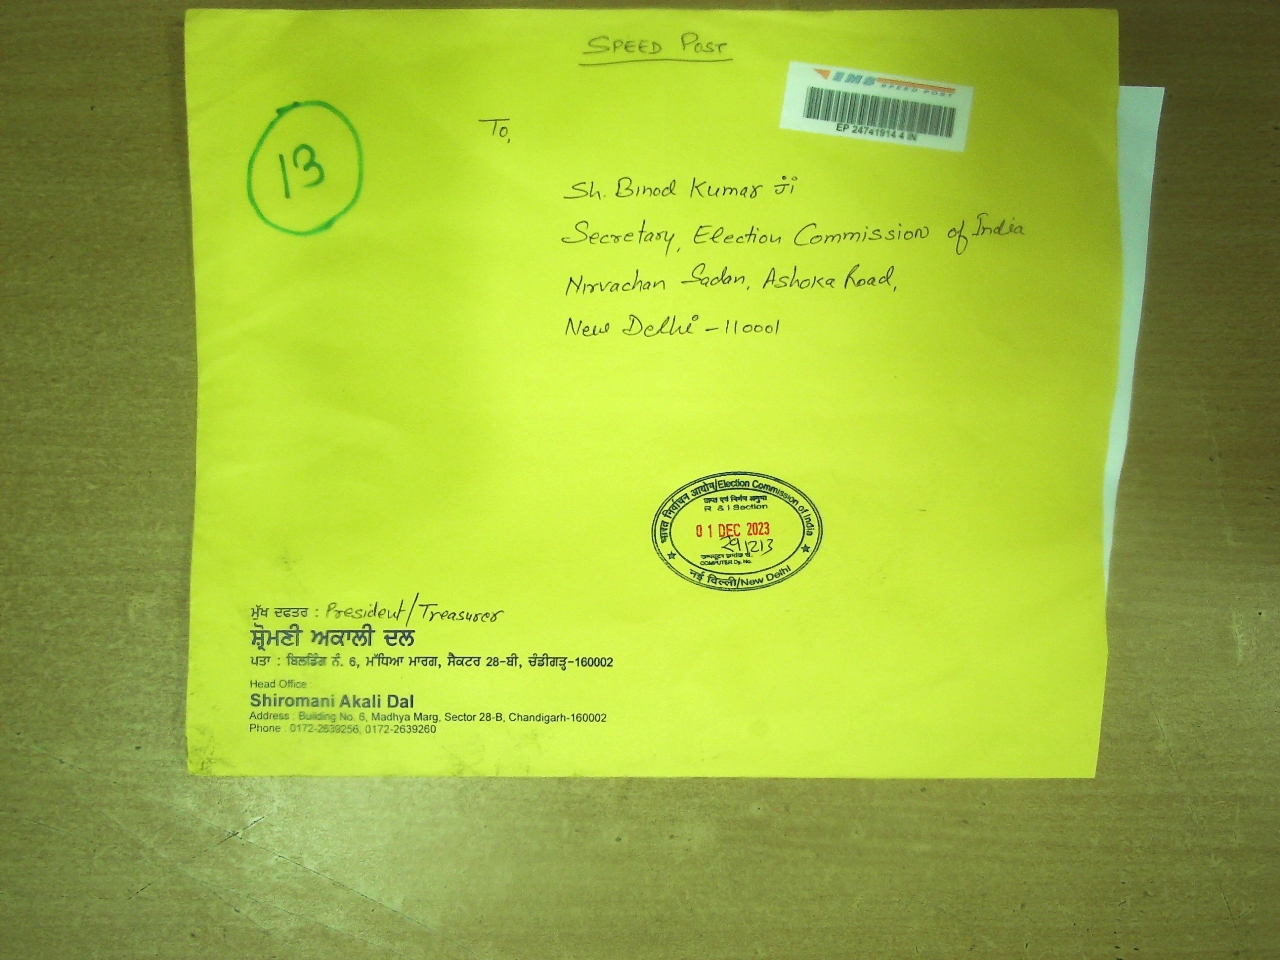 SPEED POST
EMS
SPEED POST
EP 24741914 4 IN
13
To,
Sh. Binod Kumar Ji
Secretary, Election Commission of India
Nirvachan Sadan, Ashoka Road,
New Delhi - 110001
भारत निर्वाचन आयोग/Election Commission of India
R & I Section
01 DEC 2023
291213
COMPUTER Dy. No.
नई दिल्ली/New Delhi
ਮੁੱਖ ਦਫਤਰ : President/Treasurer
ਸ਼੍ਰੋਮਣੀ ਅਕਾਲੀ ਦਲ
ਪਤਾ : ਬਿਲਡਿੰਗ ਨੰ. 6, ਮੱਧਿਆ ਮਾਰਗ, ਸੈਕਟਰ 28-ਬੀ, ਚੰਡੀਗੜ੍ਹ-160002
Head Office
Shiromani Akali Dal
Address : Building No. 6, Madhya Marg, Sector 28-B, Chandigarh-160002
Phone : 0172-2639256, 0172-2639260